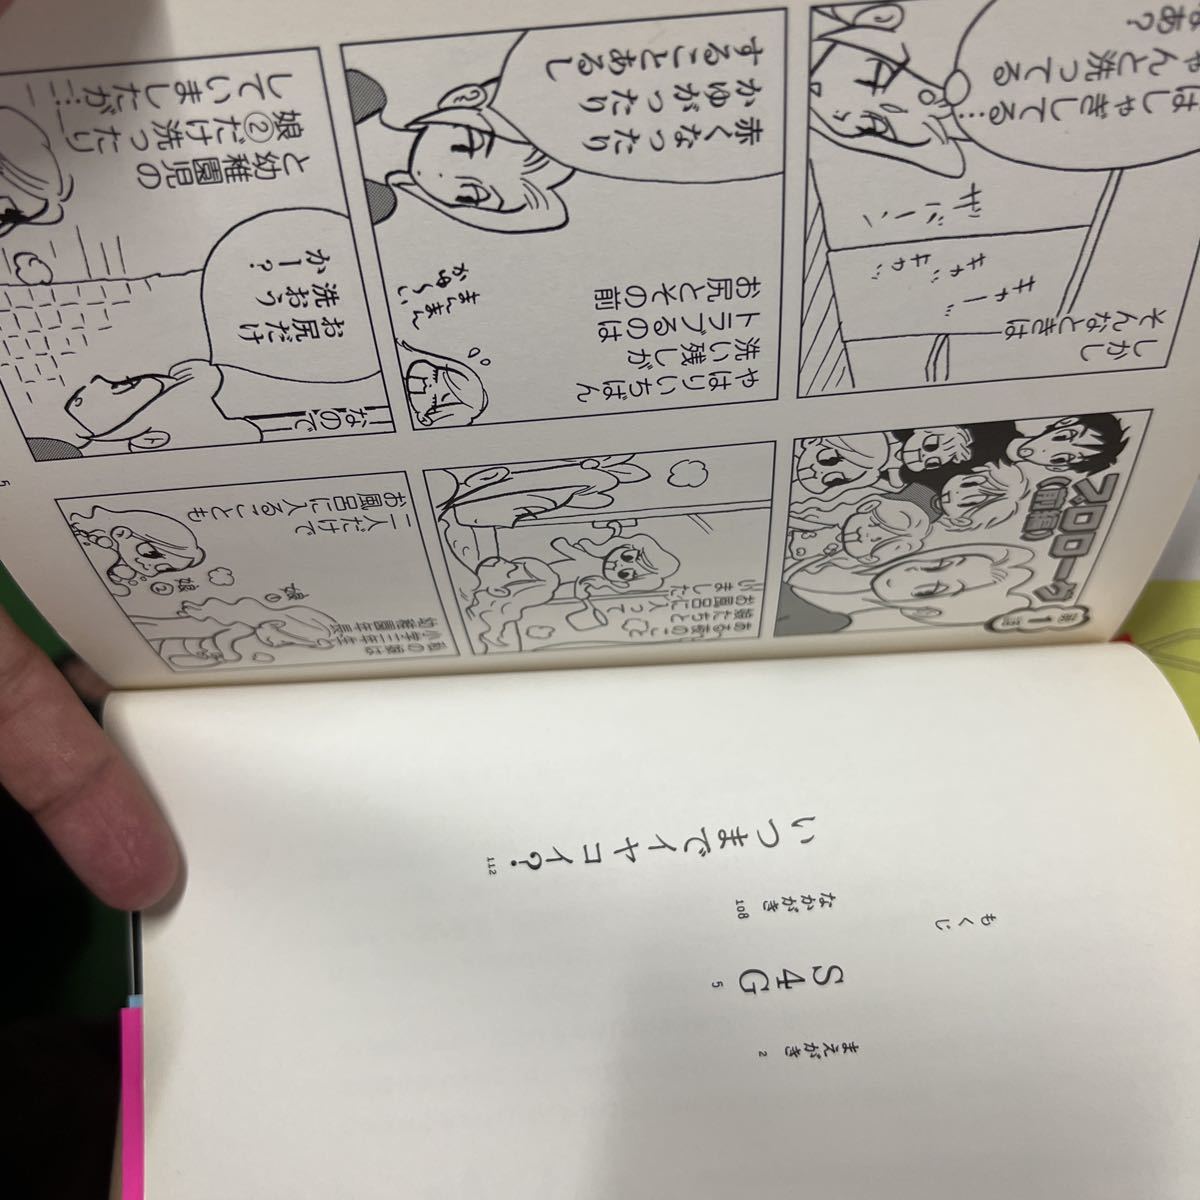 もくじ
まえがき 2
S4G 5
なかがき 108
いつまでイヤコイ? 112
第1話
プロローグ
(前編)
ある夜のこと
娘たちと
お風呂に入って
いました
私の娘は
小学三年生と
幼稚園年長
娘①
娘②
二人だけで
お風呂に入ることも
しかし
そんなときは
キャー
キャッ
ザバーン
はしゃぎしてる…
ゃんと洗ってる
なあ?
やはりいちばん
洗い残しが
トラブるのは
お尻とその前
まんまん
かゆ〜い
赤くなったり
かゆがったり
することあるし
なので
お尻だけ
洗おう
かー?
と幼稚園児の
娘②だけ洗ったり
していましたが…
5